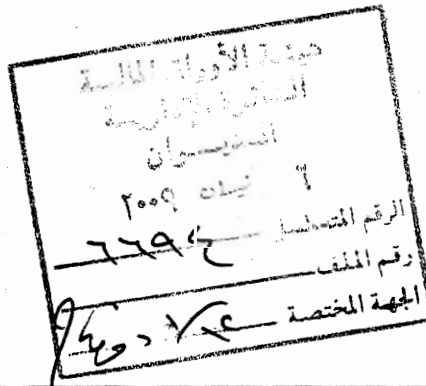 هيئة الأوراق المالية
الدائرة الإدارية
الديوان
٦ نيسان ٢٠٠٩
الرقم المتسلسل ٦٦٩٤
رقم الملف
الجهة المختصة